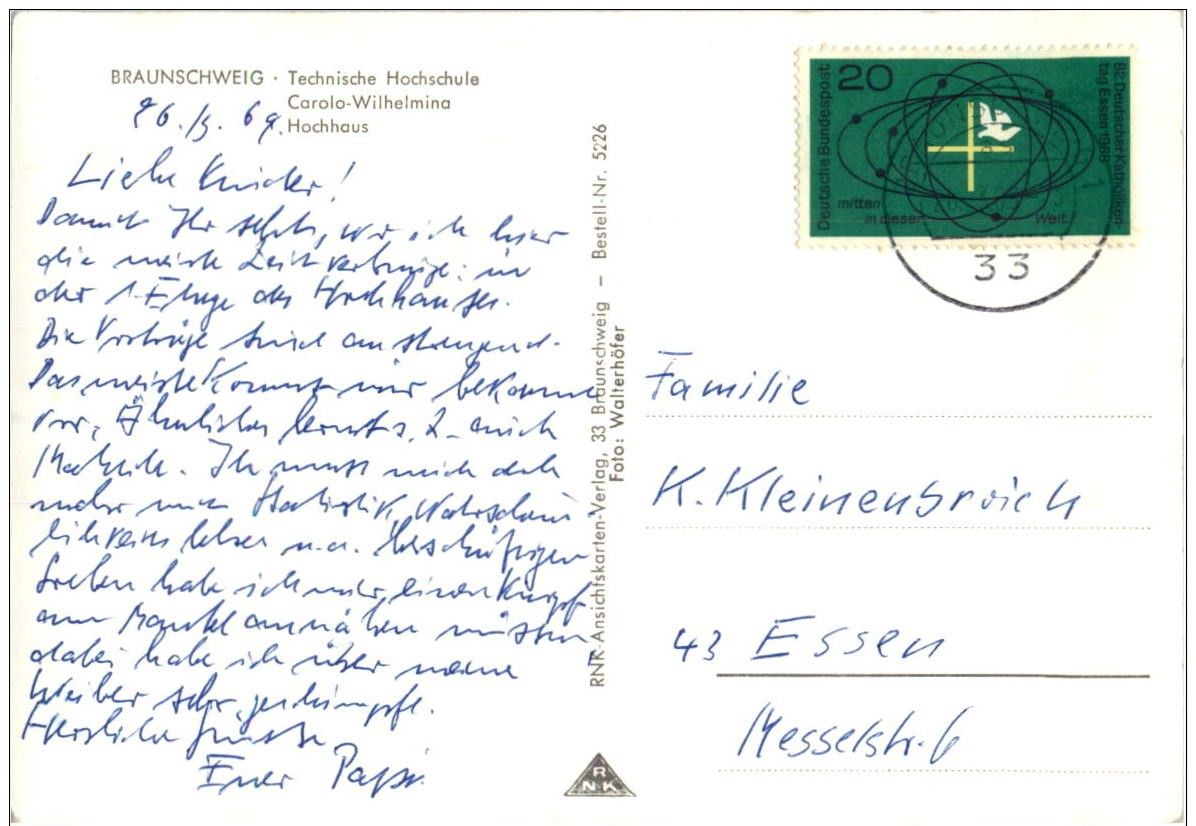 BRAUNSCHWEIG · Technische Hochschule
Carolo-Wilhelmina
Hochhaus
26.3.69.
Liebe Kinder!
Damit Ihr seht, wo ich hier
die meiste Zeit verbringe: in
der 1. Etage des Hochhauses.
Die Vorträge sind anstrengend.
Das meiste kommt mir bekannt
vor, Ähnliches lernt z. Z. auch
Ich muss mich doch
mehr mit Statistik, Wahrschein-
lichkeitslehre u.a. beschäftigen
Soeben habe ich mir einen Knopf
am Mantel annähen müssen,
dabei habe ich über meine
Weiber sehr geschimpft.
Herzliche Grüsse
Euer Papi.
RNK-Ansichtskarten-Verlag, 33 Braunschweig – Bestell-Nr. 5226
Foto: Walterhöfer
RNK
20
Deutsche Bundespost
82. Deutscher Katholiken
tag Essen 1968
mitten
in dieser Welt
33
Familie
K. Kleinenbroich
43 Essen
Messelstr. 6